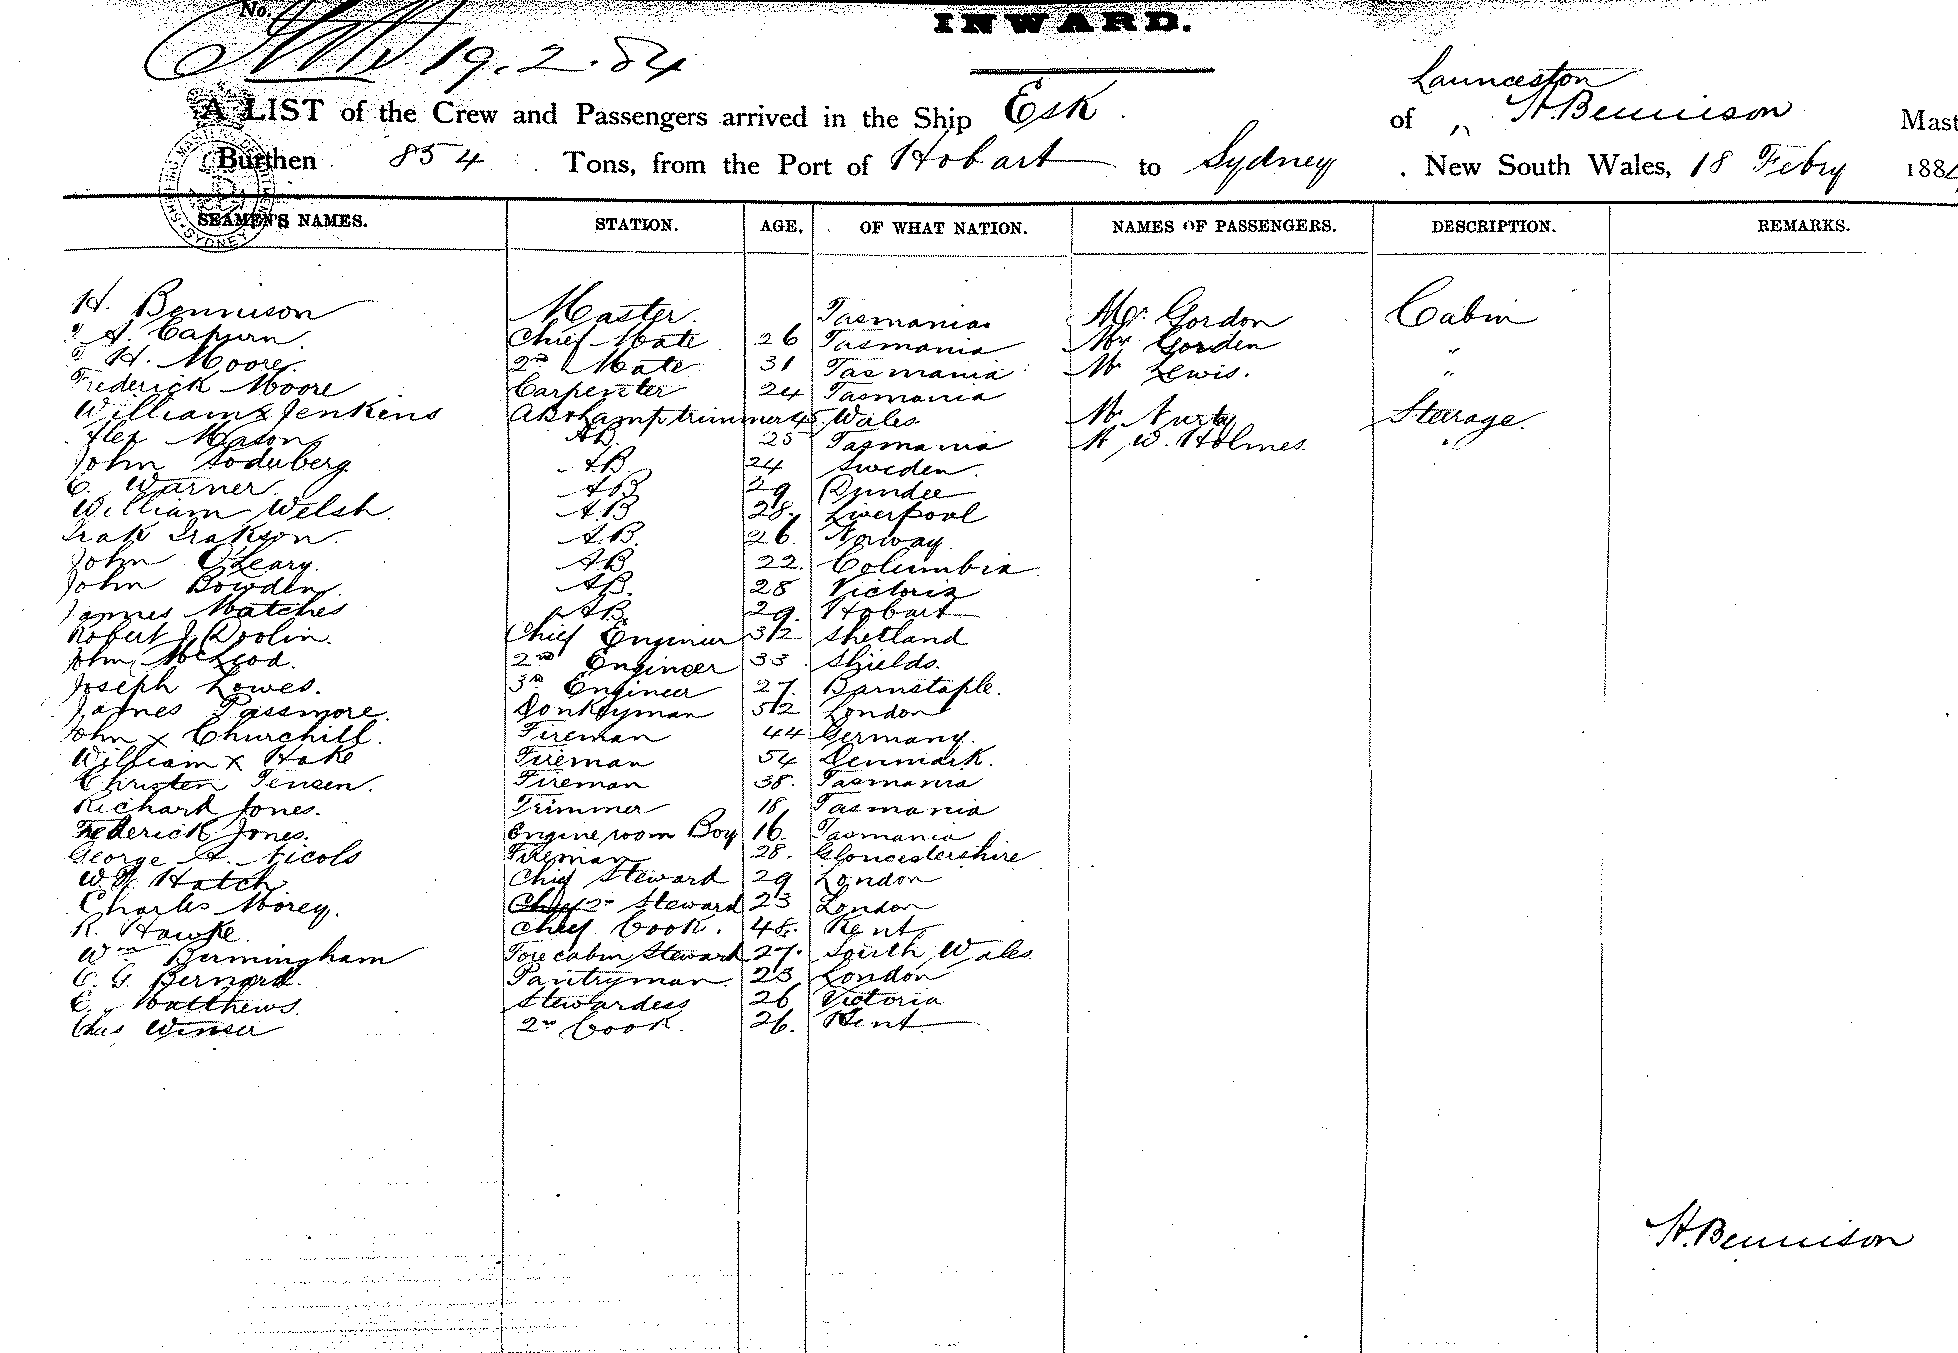 No.
INWARD.
19.2.84
Launceston
A LIST of the Crew and Passengers arrived in the Ship Esk of " H. Bennison Mast
Burthen 854 Tons, from the Port of Hobart to Sydney. New South Wales, 18 Febry 1884
SEAMEN'S NAMES. STATION. AGE. OF WHAT NATION. NAMES OF PASSENGERS. DESCRIPTION. REMARKS.
H. Bennison Master. Tasmania Mr. Gordon Cabin
A. Capurn. Chief Mate 26 Tasmania Gorden "
H. Moore. 2nd Mate 31 Tasmania Mr Lewis. "
Frederick Moore Carpenter 24 Tasmania
William x Jenkins AB & Lamptrimmer 45 Wales Mr Steerage.
Alex Mason AB. 25 Tasmania W. Holmes. "
John Soderberg AB 24 Sweden.
C. Warner. AB 29 Dundee
William Welsh. A.B 28. Liverpool
Isak Isakson. A.B. 26. Norway
John O'Leary. AB 22. Columbia
John Bowden. AB. 28 Victoria
James Matches AB. 29. Hobart
Robert J. Doolin. Chief Engineer 32 Shetland
John McLeod. 2nd Engineer 33 Shields.
Joseph Lowes. 3rd Engineer 27. Barnstaple.
James Passmore. Donkeyman 52 London
John x Churchill. Fireman 44 Germany.
William x Hake Fireman 54 Denmark.
Christen Jensen. Fireman 38. Tasmania
Richard Jones. Trimmer 18 Tasmania
Frederick Jones. Engine room Boy 16. Tasmania
George A. Nicols Fireman 28. Gloucestershire
Hatch. Chief Steward 29 London
Charles Morey. 2nd Steward 23 London
R. Hawke. Chief Cook. 48. Kent
Wm Birmingham Fore cabin Steward 27. South Wales
C. G. Bernard. Pantryman. 23 London
C. Matthews. Stewardess 26 Victoria
Chas Winser 2nd Cook. 26. Kent
H. Bennison